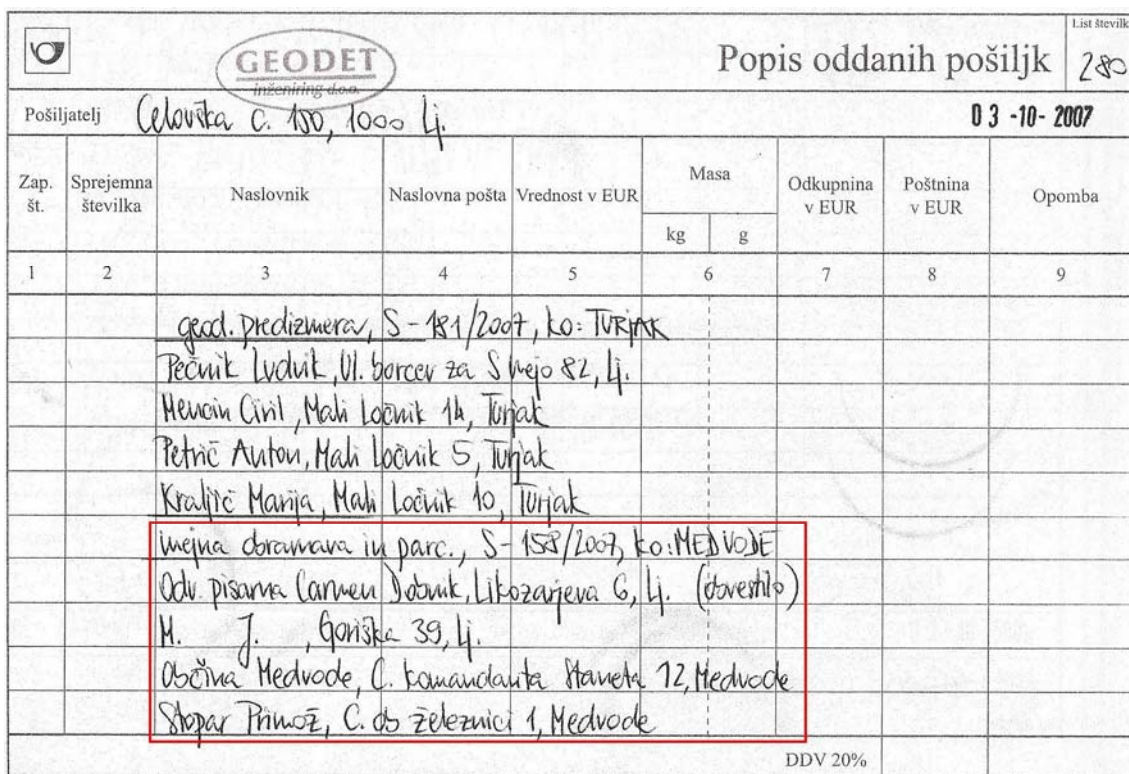 GEODET
inženiring d.o.o.
Popis oddanih pošiljk
List številk
280
Pošiljatelj Celovška c. 150, 1000 Lj.
03 -10- 2007
Zap. št.
Sprejemna številka
Naslovnik
Naslovna pošta
Vrednost v EUR
Masa
kg
g
Odkupnina v EUR
Poštnina v EUR
Opomba
1 2 3 4 5 6 7 8 9
geod. predizmera, S-181/2007, ko: TURJAK
Pečnik Ludvik, Ul. borcev za S mejo 82, Lj.
Mali Ločnik 14, Turjak
Petrič Anton, Mali Ločnik 5, Turjak
Kraljič Marija, Mali Ločnik 10, Turjak
mejna obravnava in parc., S-158/2007, ko: MEDVODE
Odv. pisarna Carmen Dobnik, Likozarjeva 6, Lj. (obvestilo)
M. J. , Goriška 39, Lj.
Občina Medvode, C. komandanta Staneta 12, Medvode
Stopar Primož, C. ob železnici 1, Medvode
DDV 20%